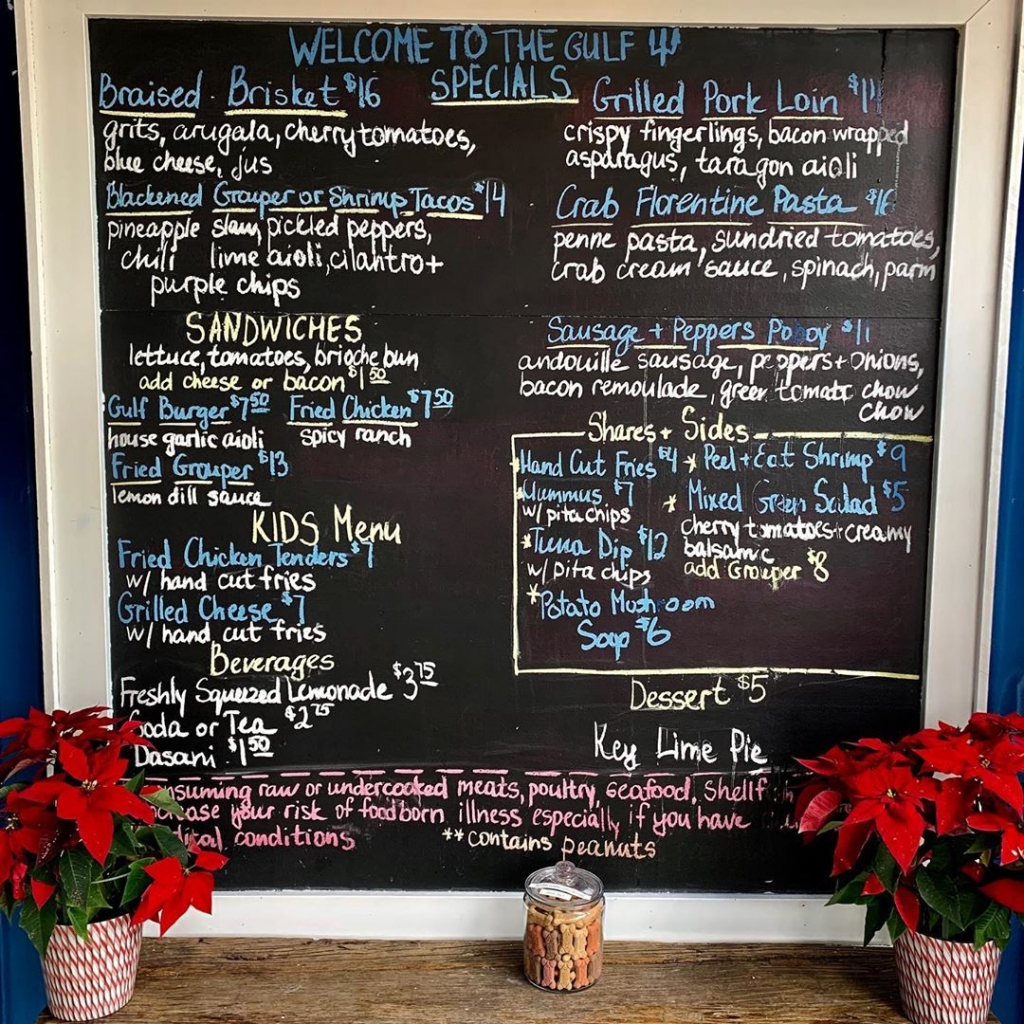 WELCOME TO THE GULF
SPECIALS
Braised Brisket $16
grits, arugala, cherry tomatoes,
blue cheese, jus
Blackened Grouper or Shrimp Tacos $14
pineapple slaw, pickled peppers,
chili lime aioli, cilantro +
purple chips
Grilled Pork Loin
crispy fingerlings, bacon wrapped
asparagus, taragon aioli
Crab Florentine Pasta $16
penne pasta, sundried tomatoes,
crab cream sauce, spinach, parm
SANDWICHES
lettuce, tomatoes, brioche bun
add cheese or bacon $1.50
Gulf Burger $7.50 Fried Chicken $7.50
house garlic aioli spicy ranch
Fried Grouper $13
lemon dill sauce
KIDS Menu
Fried Chicken Tenders $7
w/ hand cut fries
Grilled Cheese $7
w/ hand cut fries
Beverages
Freshly Squeezed Lemonade $3.75
Soda or Tea $2.75
Dasani $1.50
Sausage + Peppers Poboy $11
andouille sausage, peppers + onions,
bacon remoulade, green tomato chow
chow
Shares + Sides
Hand Cut Fries $4
Hummus $7
w/ pita chips
*Tuna Dip $12
w/ pita chips
*Potato Mushroom
Soup $6
* Peel + Eat Shrimp $9
* Mixed Green Salad $5
cherry tomatoes + creamy
balsamic
add Grouper $8
Dessert $5
Key Lime Pie
raw or undercooked meats, poultry, seafood,
your risk of foodborn illness especially if you have
conditions
**contains peanuts